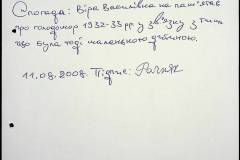 Спогади: Віра Василівна не пам'ятає
про голодомор 1932-33 рр. у зв'язку з тим,
що була тоді маленькою дитиною.
11.08.2008. Підпис: